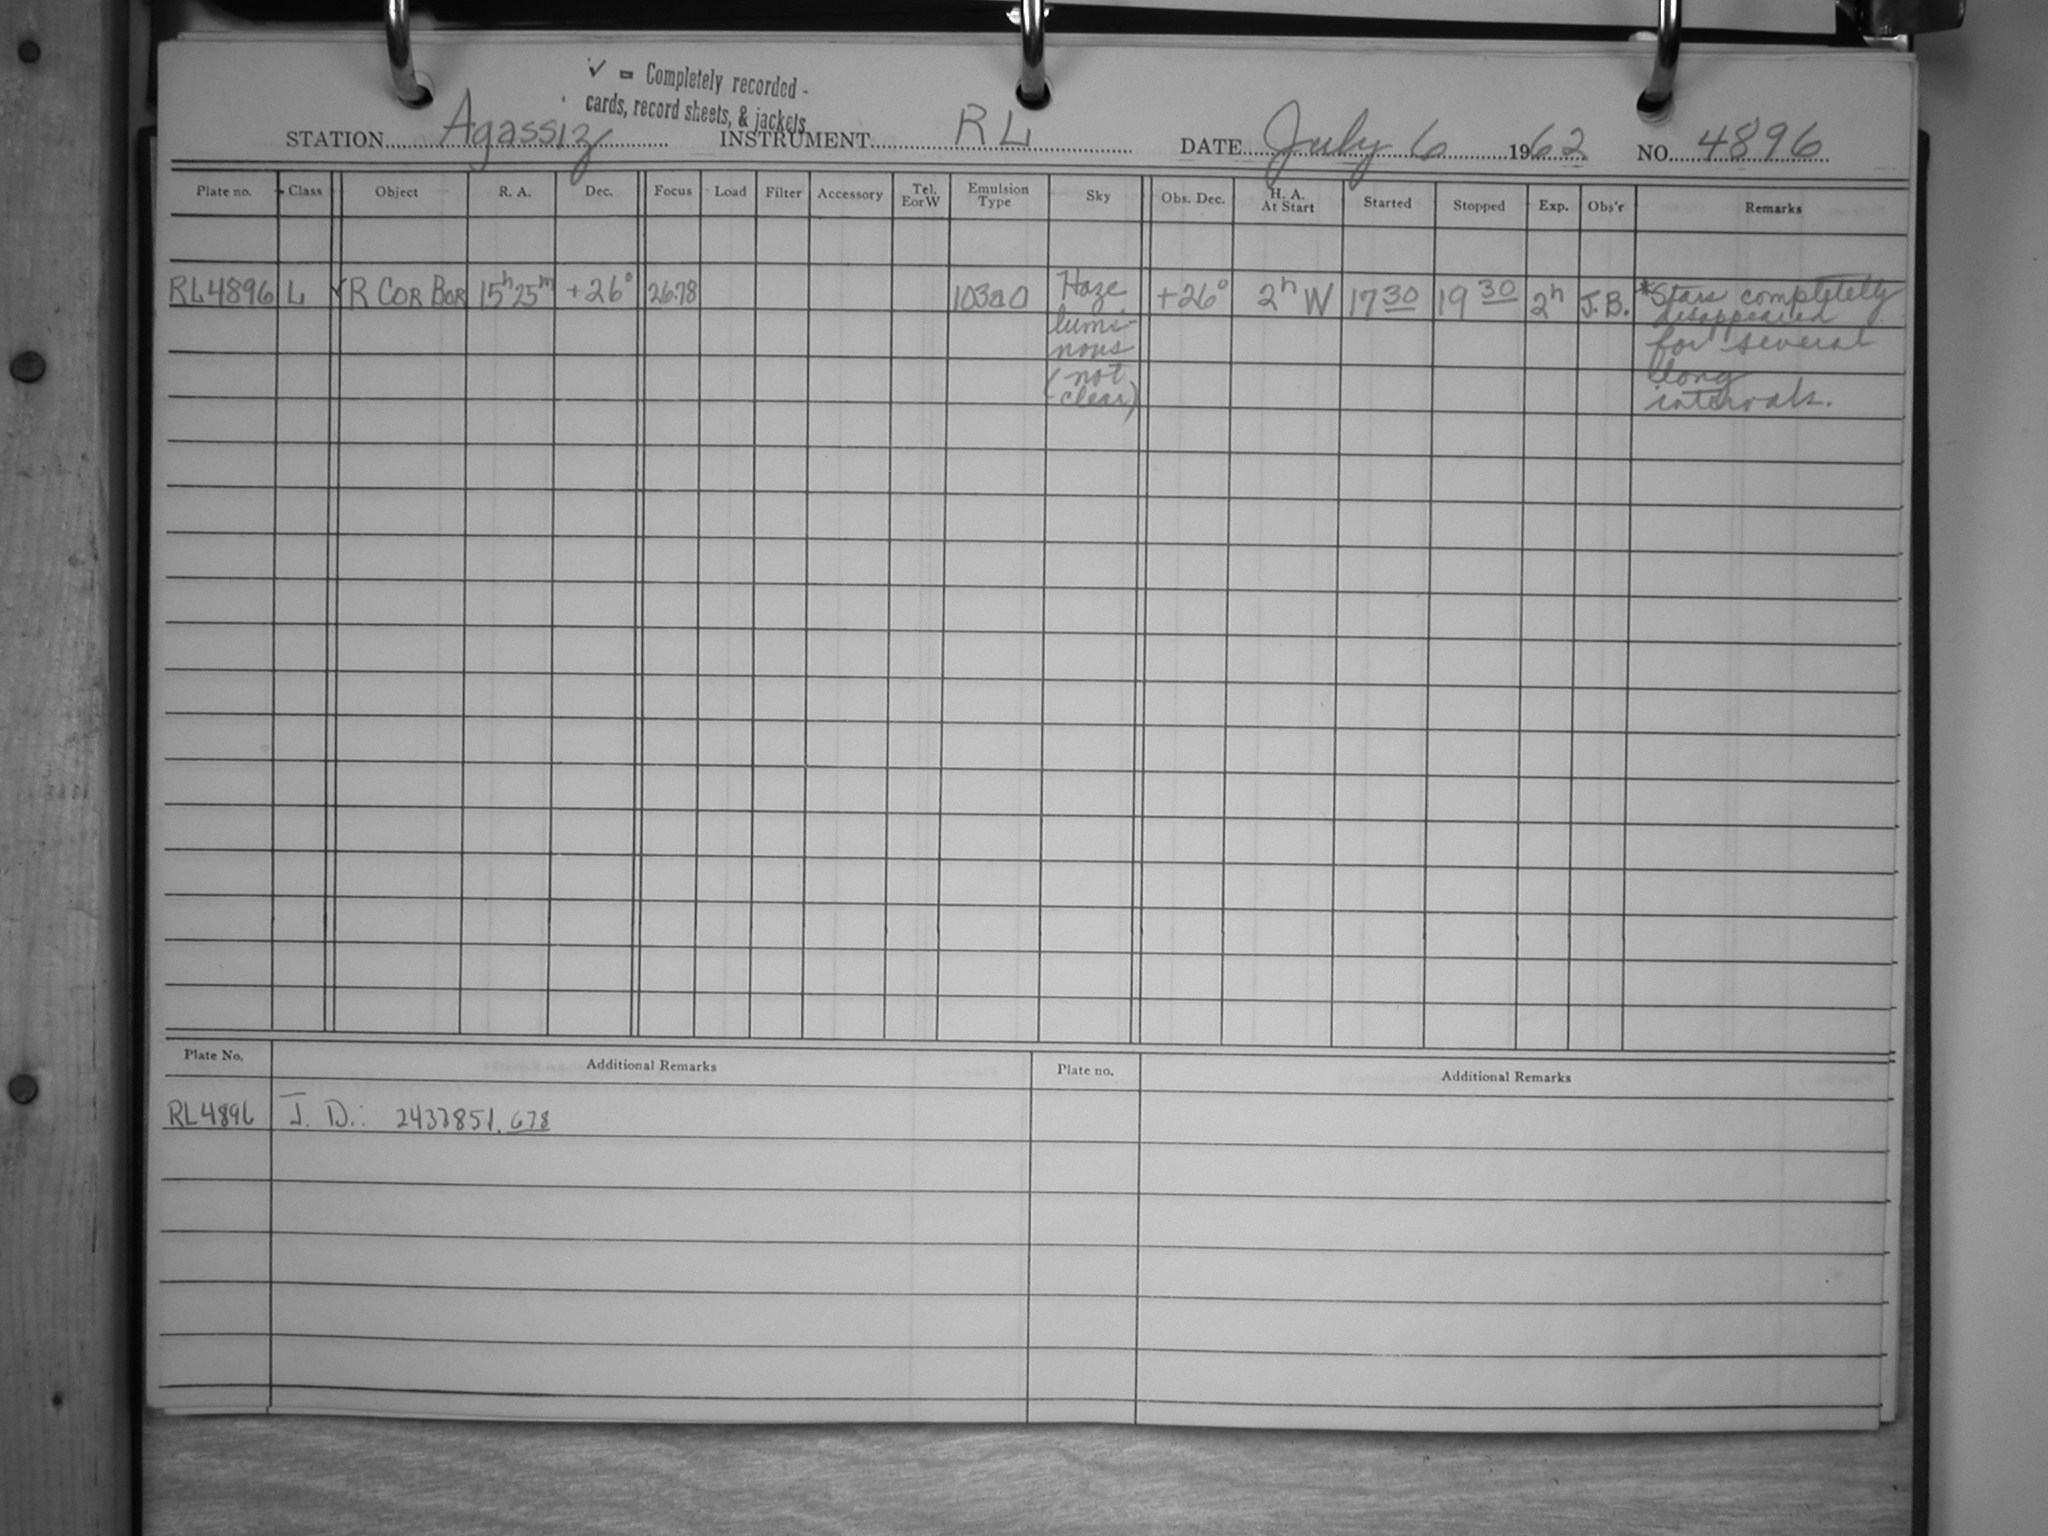 ✓ = Completely recorded -
cards, record sheets, & jackets
STATION Agassiz INSTRUMENT RL DATE July 6 1962 NO. 4896
Plate no. Class Object R. A. Dec. Focus Load Filter Accessory Tel. E or W Emulsion Type Sky Obs. Dec. H. A. At Start Started Stopped Exp. Obs'r Remarks
RL4896 L ✓ R COR BOR 15h25m +26° 26.78 103a0 Haze +26° 2h W 17 30 19 30 2h J.B. *Stars completely
lumi- disappeared
nous for several
(not long
clear) intervals.
Plate No. Additional Remarks Plate no. Additional Remarks
RL4896 J. D.: 2437851.678